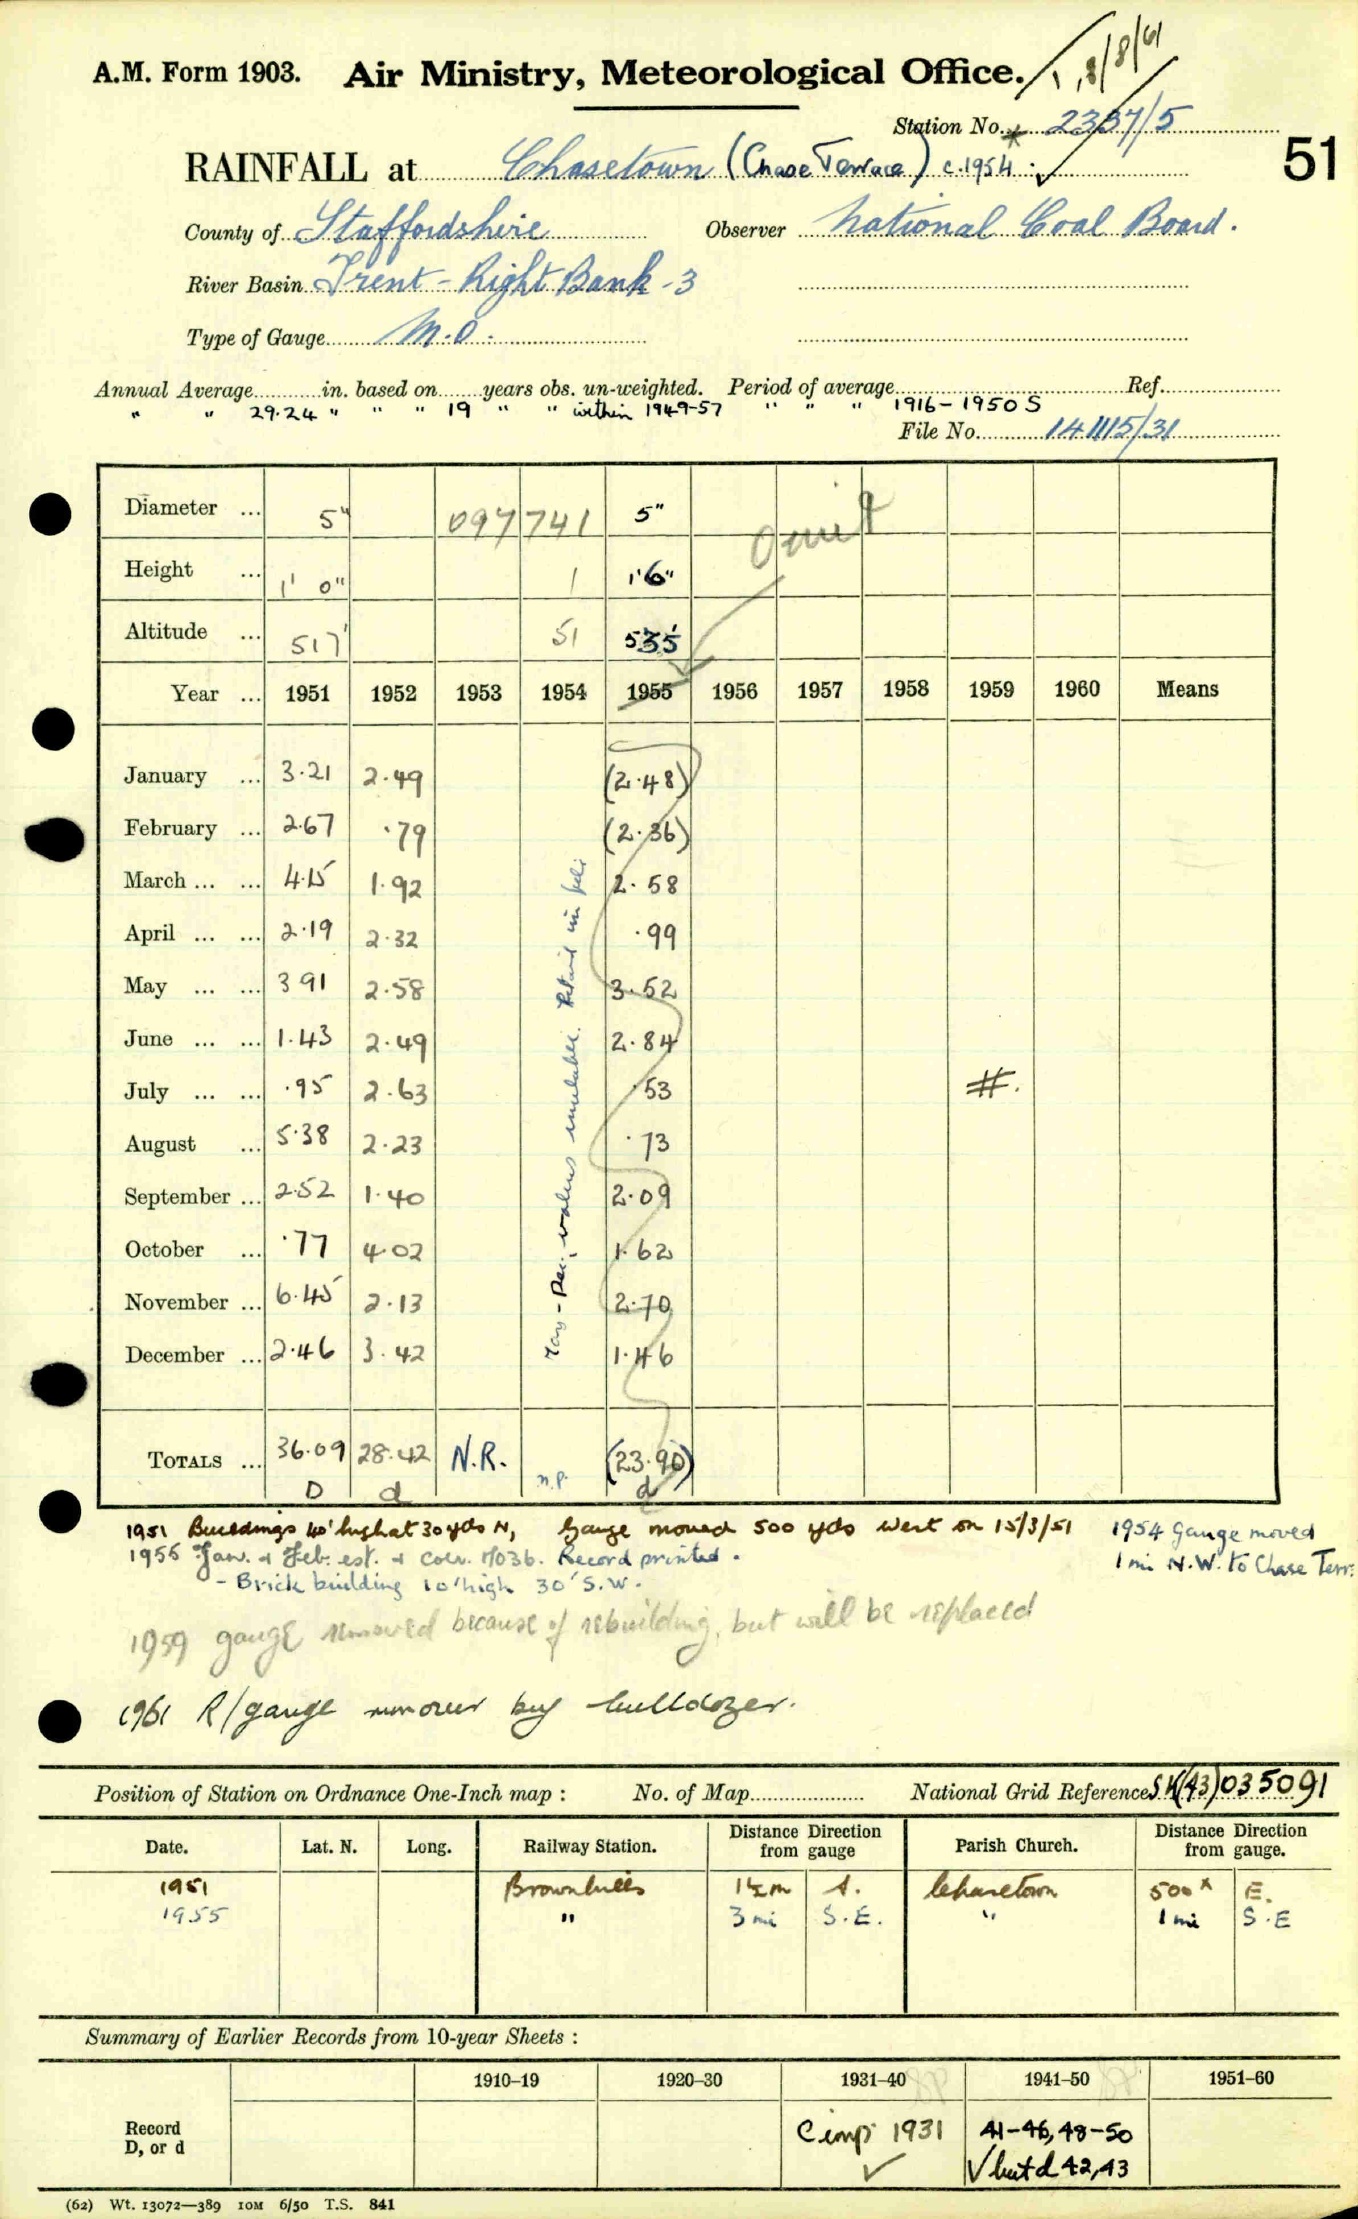 A.M. Form 1903. Air Ministry, Meteorological Office.
1,8/8/61
Station No. * 2337/5
51
RAINFALL at Chasetown (Chase Terrace) c.1954
County of Staffordshire Observer National Coal Board.
River Basin Trent - Right Bank - 3
Type of Gauge M.O.
Annual Average in. based on years obs. un-weighted. Period of average Ref.
" " 29.24 " " " 19 " " within 1949-57 " " " 1916-1950 S
File No. 141115/31
Diameter ... 5" 097741 5"
omit
Height ... 1' 0" 1 1'6"
Altitude ... 517' 51 535'
Year ... 1951 1952 1953 1954 1955 1956 1957 1958 1959 1960 Means
January ... 3.21 2.49 (2.48)
February ... 2.67 .79 (2.36)
March ... ... 4.15 1.92 2.58
April ... ... 2.19 2.32 .99
May ... ... 3 91 2.58 3.52
June ... ... 1.43 2.49 2.84
July ... ... .95 2.63 .53 #.
August ... 5.38 2.23 .73
September ... 2.52 1.40 2.09
October ... .77 4.02 1.62
November ... 6.45 2.13 2.70
December ... 2.46 3.42 1.46
May - Dec. values
TOTALS ... 36.09 28.42 N.R. n.p. (23.90)
D d d
1951 Buildings 40' high at 30 yds N, Gauge moved 500 yds West on 15/3/51 1954 Gauge moved
1955 Jan. & Feb. est. & Record printed. 1 mi N.W. to Chase Terr.
- Brick building 10' high 30' S.W.
1959 gauge removed because of rebuilding, but will be replaced
1961 R/gauge by bulldozer.
Position of Station on Ordnance One-Inch map : No. of Map National Grid Reference SK(43)035091
Date. Lat. N. Long. Railway Station. Distance Direction from gauge Parish Church. Distance Direction from gauge.
1951 Brownhills 1½m Chasetown 500 x E.
1955 " 3 mi S.E. " 1 mi S.E
Summary of Earlier Records from 10-year Sheets :
1910–19 1920–30 1931–40 1941–50 1951–60
Record D, or d 1931 41-46, 48-50
✓ ✓ but d 42,43
(62) Wt. 13072—389 10M 6/50 T.S. 841